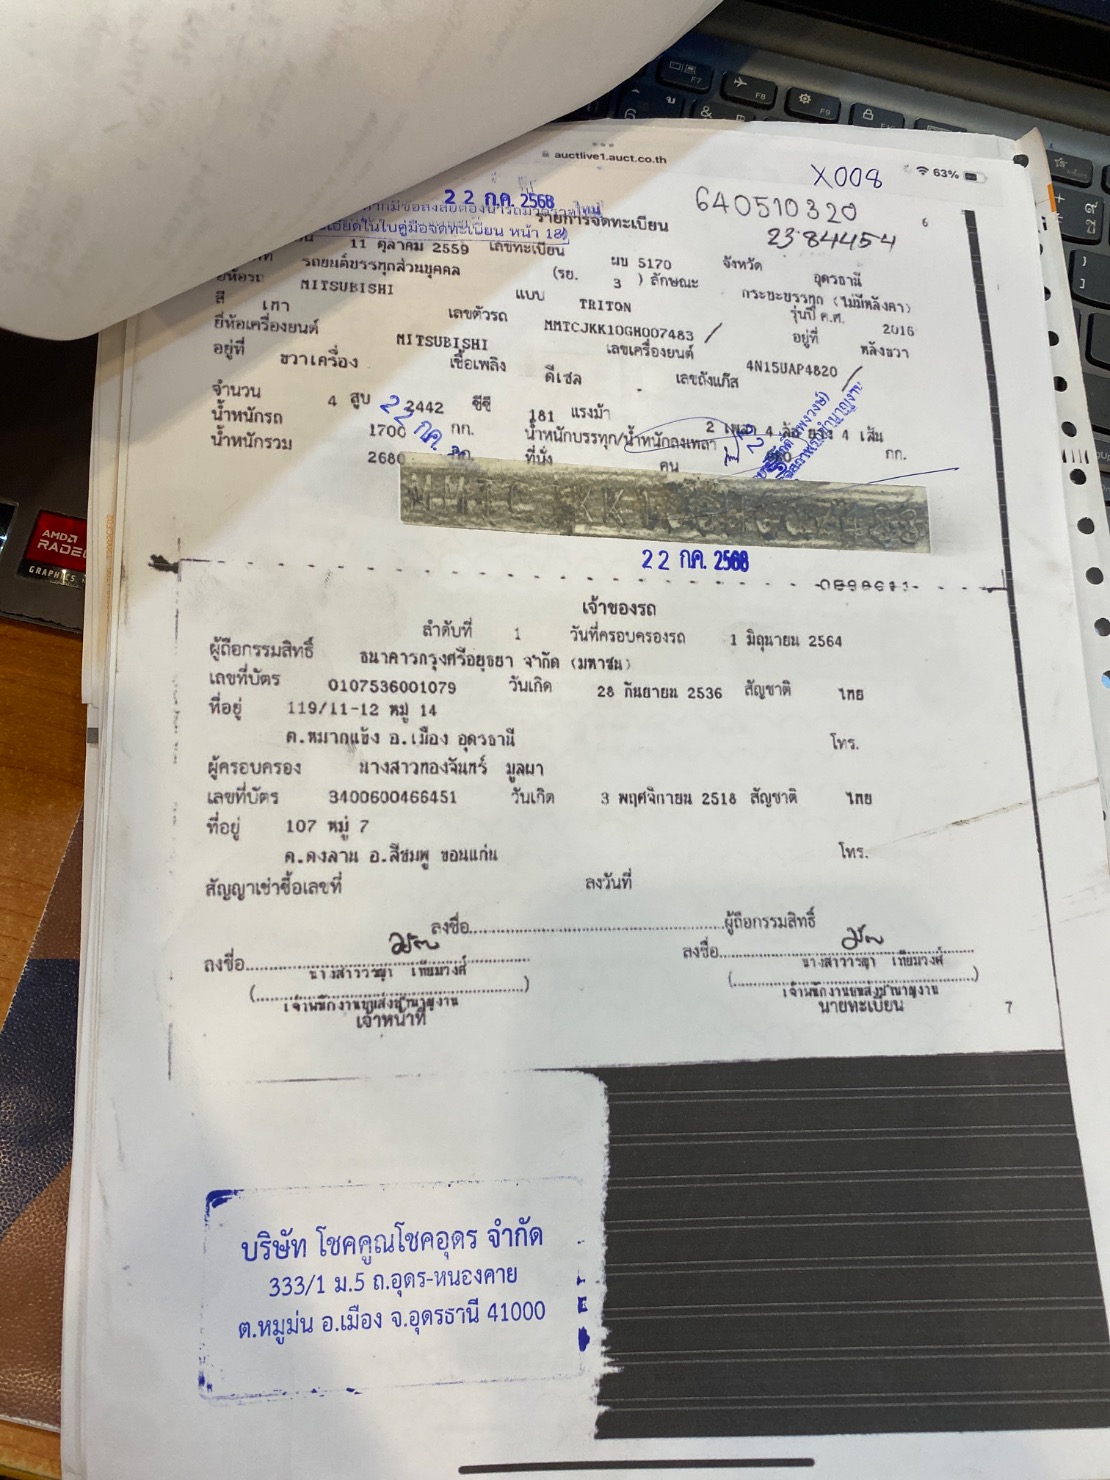 auctlive1.auct.co.th
63%
X008
22 ก.ค. 2568
640510320
2384454
6
รายการจดทะเบียน
ในใบคู่มือจดทะเบียน หน้า 18
11 ตุลาคม 2559 เลขทะเบียน ผข 5170 จังหวัด อุดรธานี
รถยนต์บรรทุกส่วนบุคคล (รย. 3 ) ลักษณะ กระบะบรรทุก (ไม่มีหลังคา)
ยี่ห้อรถ MITSUBISHI แบบ TRITON รุ่นปี ค.ศ. 2016
สี เทา เลขตัวรถ MMTCJKK10GH007483 อยู่ที่ หลังขวา
ยี่ห้อเครื่องยนต์ MITSUBISHI เลขเครื่องยนต์ 4N15UAP4820
อยู่ที่ ขวาเครื่อง เชื้อเพลิง ดีเซล เลขถังแก๊ส
จำนวน 4 สูบ 2442 ซีซี 181 แรงม้า 2 เพลา 4 ล้อ ยาง 4 เส้น
น้ำหนักรถ 1700 กก. น้ำหนักบรรทุก/น้ำหนักลงเพลา กก.
น้ำหนักรวม 2680 กก. ที่นั่ง คน
22 ก.ค.
22 ก.ค. 2568
เจ้าของรถ
ลำดับที่ 1 วันที่ครอบครองรถ 1 มิถุนายน 2564
ผู้ถือกรรมสิทธิ์ ธนาคารกรุงศรีอยุธยา จำกัด (มหาชน)
เลขที่บัตร 0107536001079 วันเกิด 28 กันยายน 2536 สัญชาติ ไทย
ที่อยู่ 119/11-12 หมู่ 14
ต.หมากแข้ง อ.เมือง อุดรธานี โทร.
ผู้ครอบครอง นางสาวทองจันทร์ มูลผา
เลขที่บัตร 3400600466451 วันเกิด 3 พฤศจิกายน 2518 สัญชาติ ไทย
ที่อยู่ 107 หมู่ 7
ต.ดงลาน อ.สีชมพู ขอนแก่น โทร.
สัญญาเช่าซื้อเลขที่ ลงวันที่
ลงชื่อ ผู้ถือกรรมสิทธิ์
ลงชื่อ ลงชื่อ
นางสาววรญา เทียมวงศ์ นางสาววรญา เทียมวงศ์
เจ้าพนักงานขนส่งชำนาญงาน เจ้าพนักงานขนส่งชำนาญงาน
เจ้าหน้าที่ นายทะเบียน
7
บริษัท โชคคูณโชคอุดร จำกัด
333/1 ม.5 ถ.อุดร-หนองคาย
ต.หมูม่น อ.เมือง จ.อุดรธานี 41000
AMD
RADEON
GRAPHICS